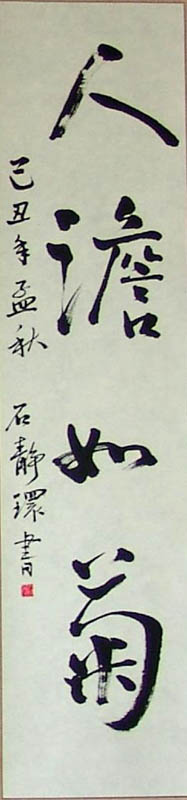 人澹如菊
己丑年孟秋 石静環書